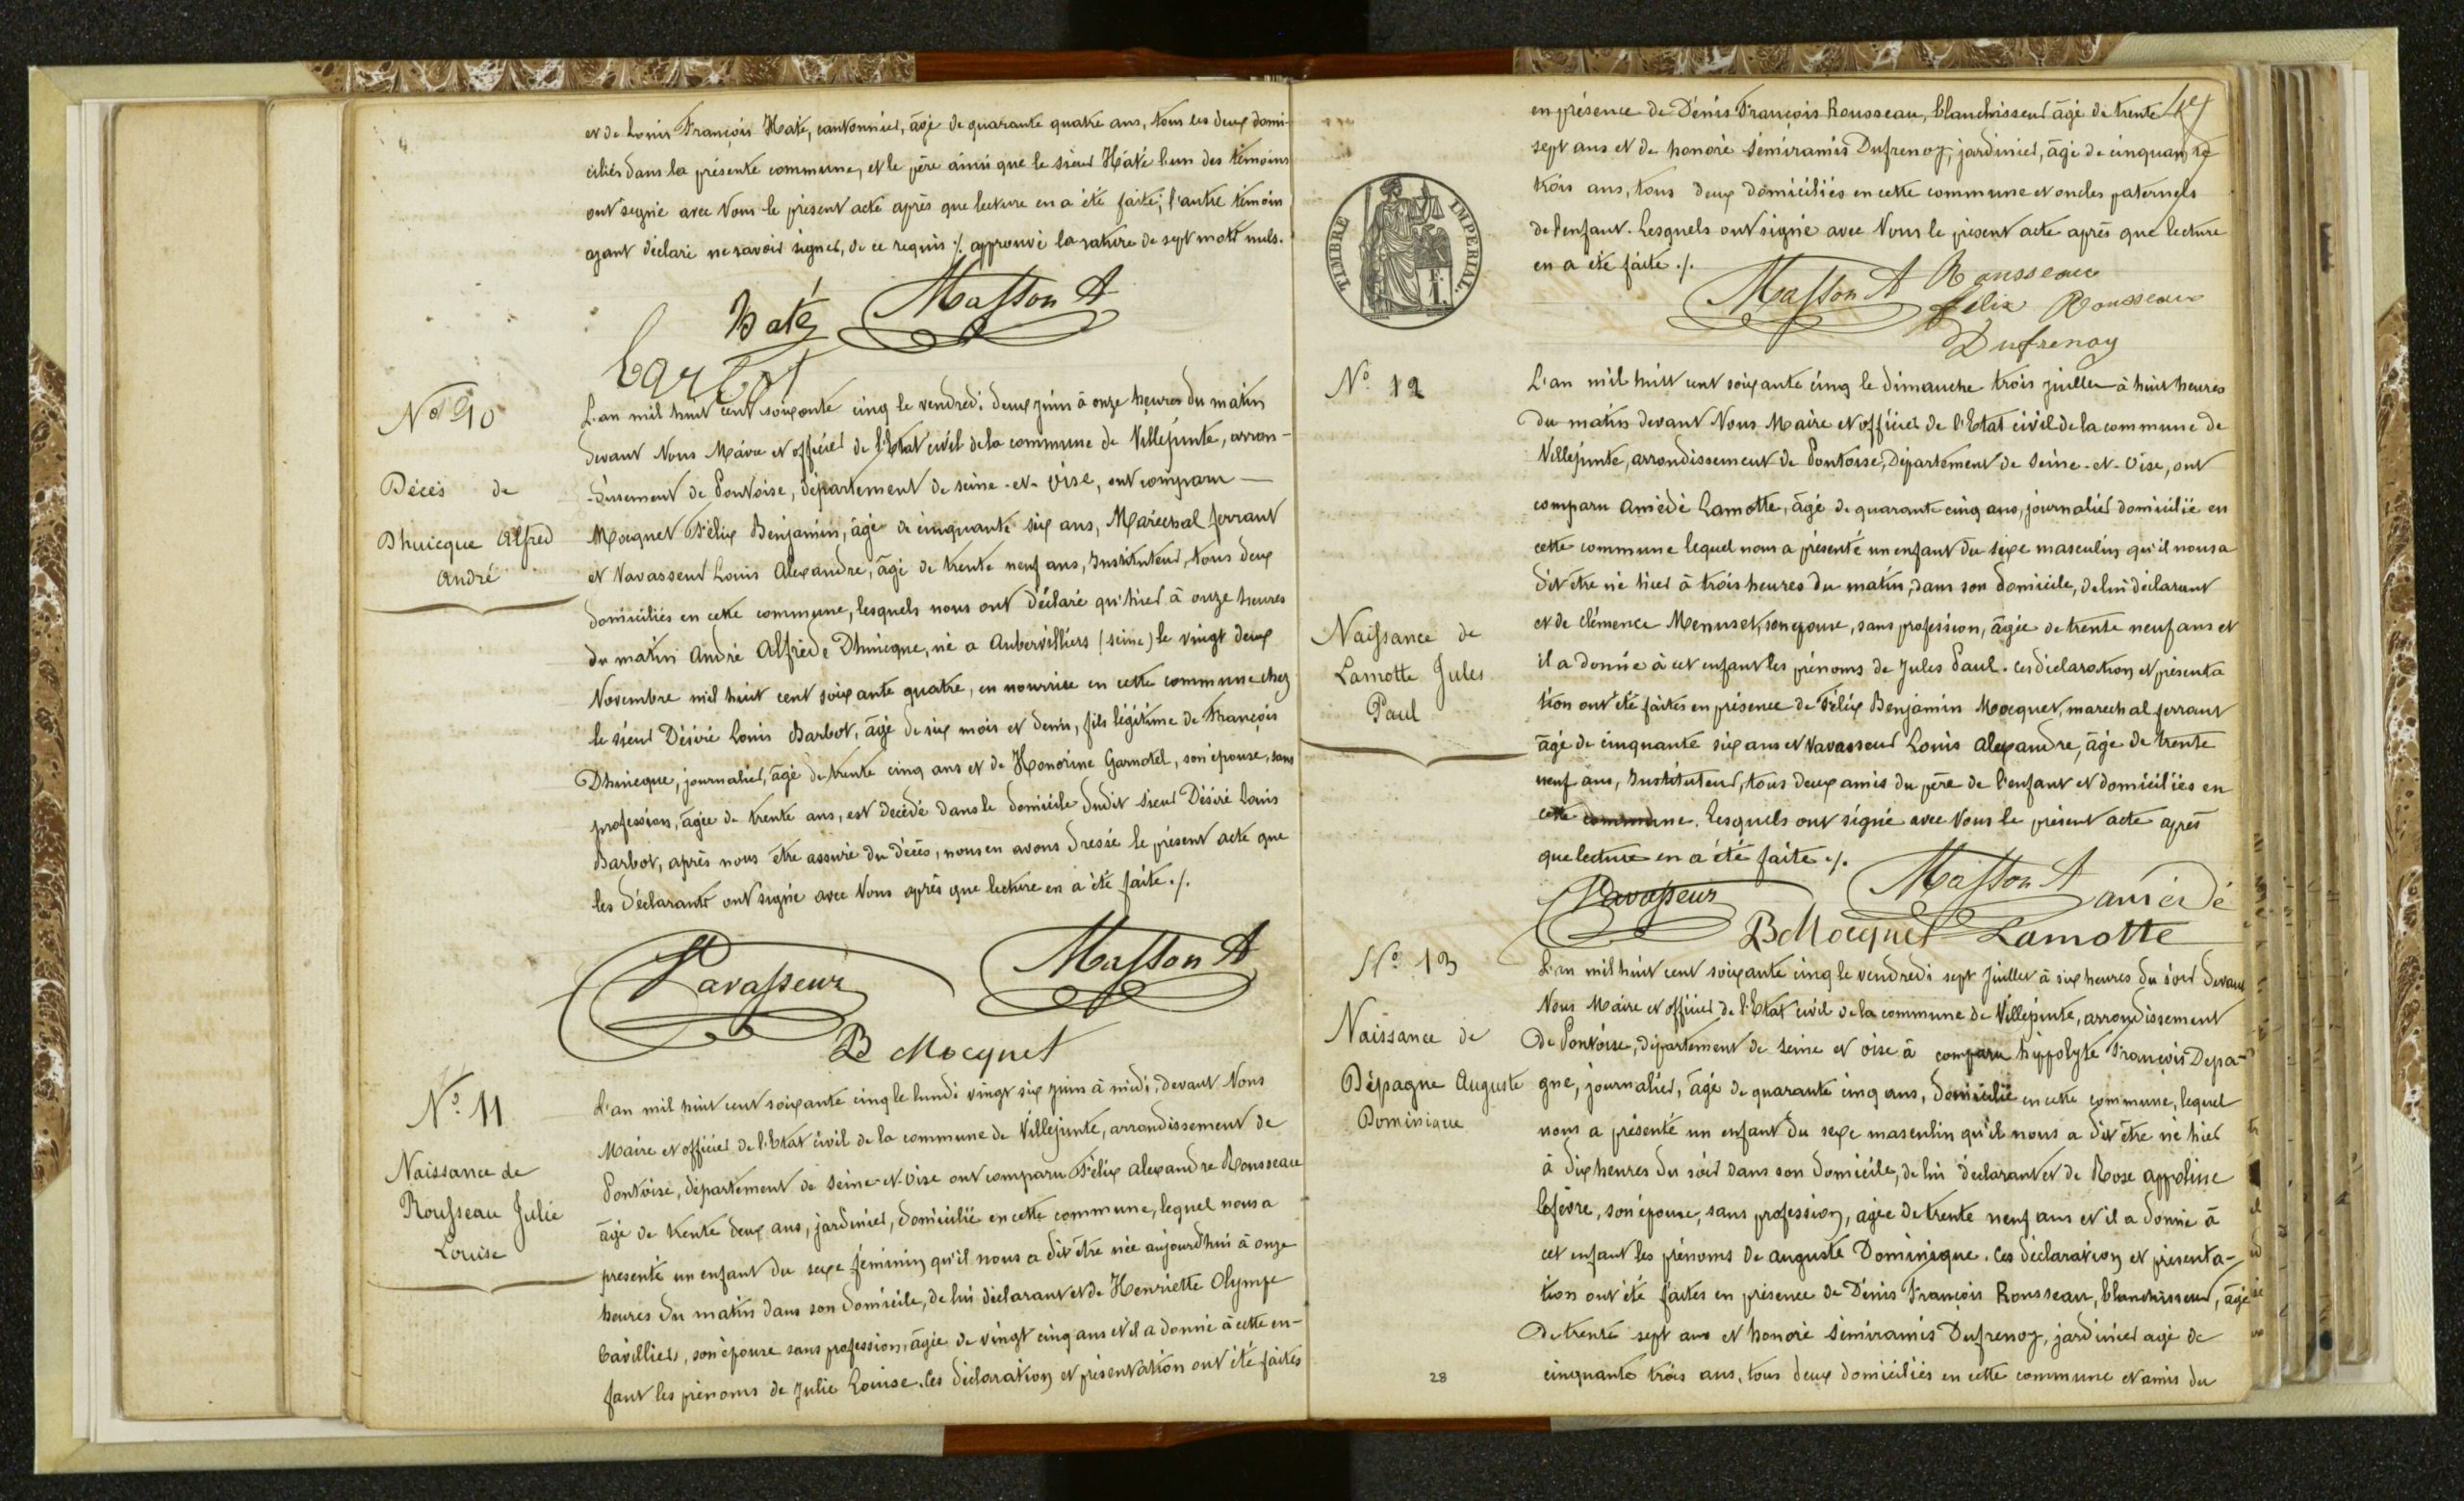 et de Louis François Haté, cantonnier, âgé de quarante quatre ans, tous les deux domi-
ciliés dans la présente commune, et le père ainsi que le sieur Haté l'un des témoins
ont signé avec Nous le présent acte après que lecture en a été faite; l'autre témoin
ayant déclaré ne savoir signer, de ce requis ./. approuvé la rature de sept mots nuls.
Haté Masson A
Barbot
No 10
Décès de
Dhuicque Alfred
André
L'an mil huit cent soixante cinq le vendredi deux juin à onze heures du matin
devant Nous Maire et officier de l'Etat civil de la commune de Villepinte, arron-
-dissement de Pontoise, département de seine-et-oise, ont comparu
Mocquet Félix Benjamin, âgé de cinquante six ans, Maréchal ferrant
et Vavasseur Louis Alexandre, âgé de trente neuf ans, Instituteur, tous deux
domiciliés en cette commune, lesquels nous ont déclaré qu'hier à onze heures
du matin André Alfred Dhuicque, né a Aubervilliers (seine) le vingt deux
Novembre mil huit cent soixante quatre, en nourrice en cette commune chez
le sieur Désiré Louis Barbot, âgé de six mois et demi, fils légitime de François
Dhuicque, journalier, âgé de trente cinq ans et de Honorine Garnotel, son épouse, sans
profession, âgée de trente ans, est décédé dans le domicile dudit sieur Désiré Louis
Barbot, après nous être assuré du décès, nous en avons dressé le présent acte que
les déclarants ont signé avec Nous après que lecture en a été faite ./.
Vavasseur Masson A
B Mocquet
No. 11
Naissance de
Rousseau Julie
Louise
L'an mil huit cent soixante cinq le lundi vingt six juin à midi, devant Nous
Maire et officier de l'Etat civil de la commune de Villepinte, arrondissement de
Pontoise, département de Seine-et-Oise ont comparu Félix Alexandre Rousseau
âgé de trente deux ans, jardinier, domicilié en cette commune, lequel nous a
présenté un enfant du sexe féminin qu'il nous a dit être née aujourd'hui à onze
heures du matin dans son domicile, de lui déclarant et de Henriette Olympe
Cavillier, son épouse sans profession, âgée de vingt cinq ans et il a donné à cette en-
fant les prénoms de Julie Louise. Ces déclaration et présentation ont été faites
TIMBRE IMPERIAL
en présence de Denis François Rousseau, blanchisseur âgé de trente
sept ans et de honoré Sémiramis Dufrenoy, jardinier, âgé de cinquante
trois ans, tous deux domiciliés en cette commune et oncles paternels
de l'enfant. Lesquels ont signé avec Nous le présent acte après que lecture
en a été faite ./.
Masson A Rousseau
felix Rousseau
Dufrenoy
No. 12
Naissance de
Lamotte Jules
Paul
L'an mil huit cent soixante cinq le dimanche trois juillet à huit heures
du matin devant Nous Maire et officier de l'Etat civil de la commune de
Villepinte, arrondissement de Pontoise, Département de Seine-et-Oise, ont
comparu Amédé Lamotte, âgé de quarante cinq ans, journalier domicilié en
cette commune lequel nous a présenté un enfant du sexe masculin qu'il nous a
dit être né hier à trois heures du matin, dans son domicile, de lui déclarant
et de Clémence Menuset, son épouse, sans profession, âgée de trente neuf ans et
il a donné à cet enfant les prénoms de Jules Paul. ces déclaration et présenta
tion ont été faites en présence de Félix Benjamin Mocquet, marechal ferrant
âgé de cinquante six ans et Vavasseur Louis Alexandre, âgé de trente
neuf ans, Instituteur, tous deux amis du père de l'enfant et domiciliés en
cette commune. Lesquels ont signé avec Nous le présent acte après
que lecture en a été faite ./.
Vavasseur Masson A amédé
B Mocquet Lamotte
No. 13
Naissance de
Dépagne Auguste
Dominique
L'an mil huit cent soixante cinq le vendredi sept Juillet à six heures du soir devant
Nous Maire et officier de l'Etat civil de la commune de Villepinte, arrondissement
de Pontoise, département de Seine et oise à comparu hippolyte François Depa-
gne, journalier, âgé de quarante cinq ans, domicilié en cette commune, lequel
nous a présenté un enfant du sexe masculin qu'il nous a dit être né hier
à dix heures du soir dans son domicile, de lui déclarant et de Rose Appoline
Lefèvre, son épouse, sans profession, agée de trente neuf ans et il a donné à
cet enfant les prénoms de Auguste Dominique. Ces déclaration et présenta-
tion ont été faites en présence de Denis François Rousseau, blanchisseur, âgé
de trente sept ans et honoré Sémiramis Dufrenoy, jardinier agé de
cinquante trois ans, tous deux domiciliés en cette commune et amis du
28